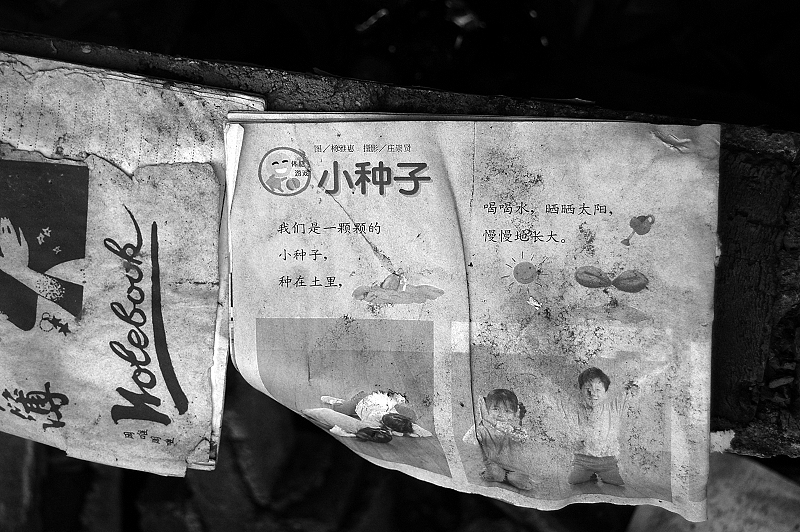 Notebook
簿
小种子
我们是一颗颗的
小种子，
种在土里，
喝喝水，晒晒太阳，
慢慢地长大。